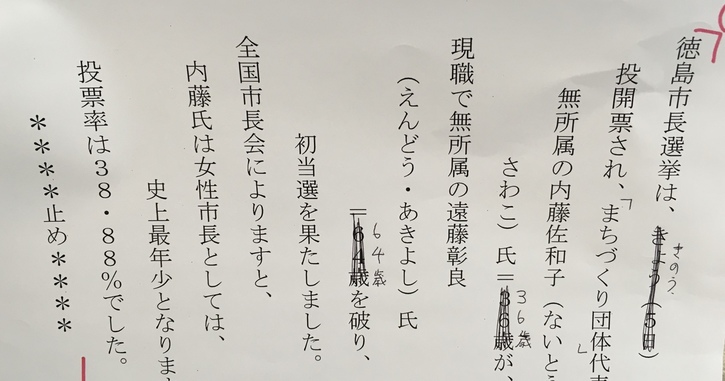 徳島市長選挙は、きょう(5日)
きのう
投開票され、「まちづくり団体代表」
無所属の内藤佐和子(ないとう
さわこ)氏＝36歳が、
36歳
現職で無所属の遠藤彰良
(えんどう・あきよし)氏
＝64歳を破り、
64歳
初当選を果たしました。
全国市長会によりますと、
内藤氏は女性市長としては、
史上最年少となりま
投票率は38・88%でした。
****止め****